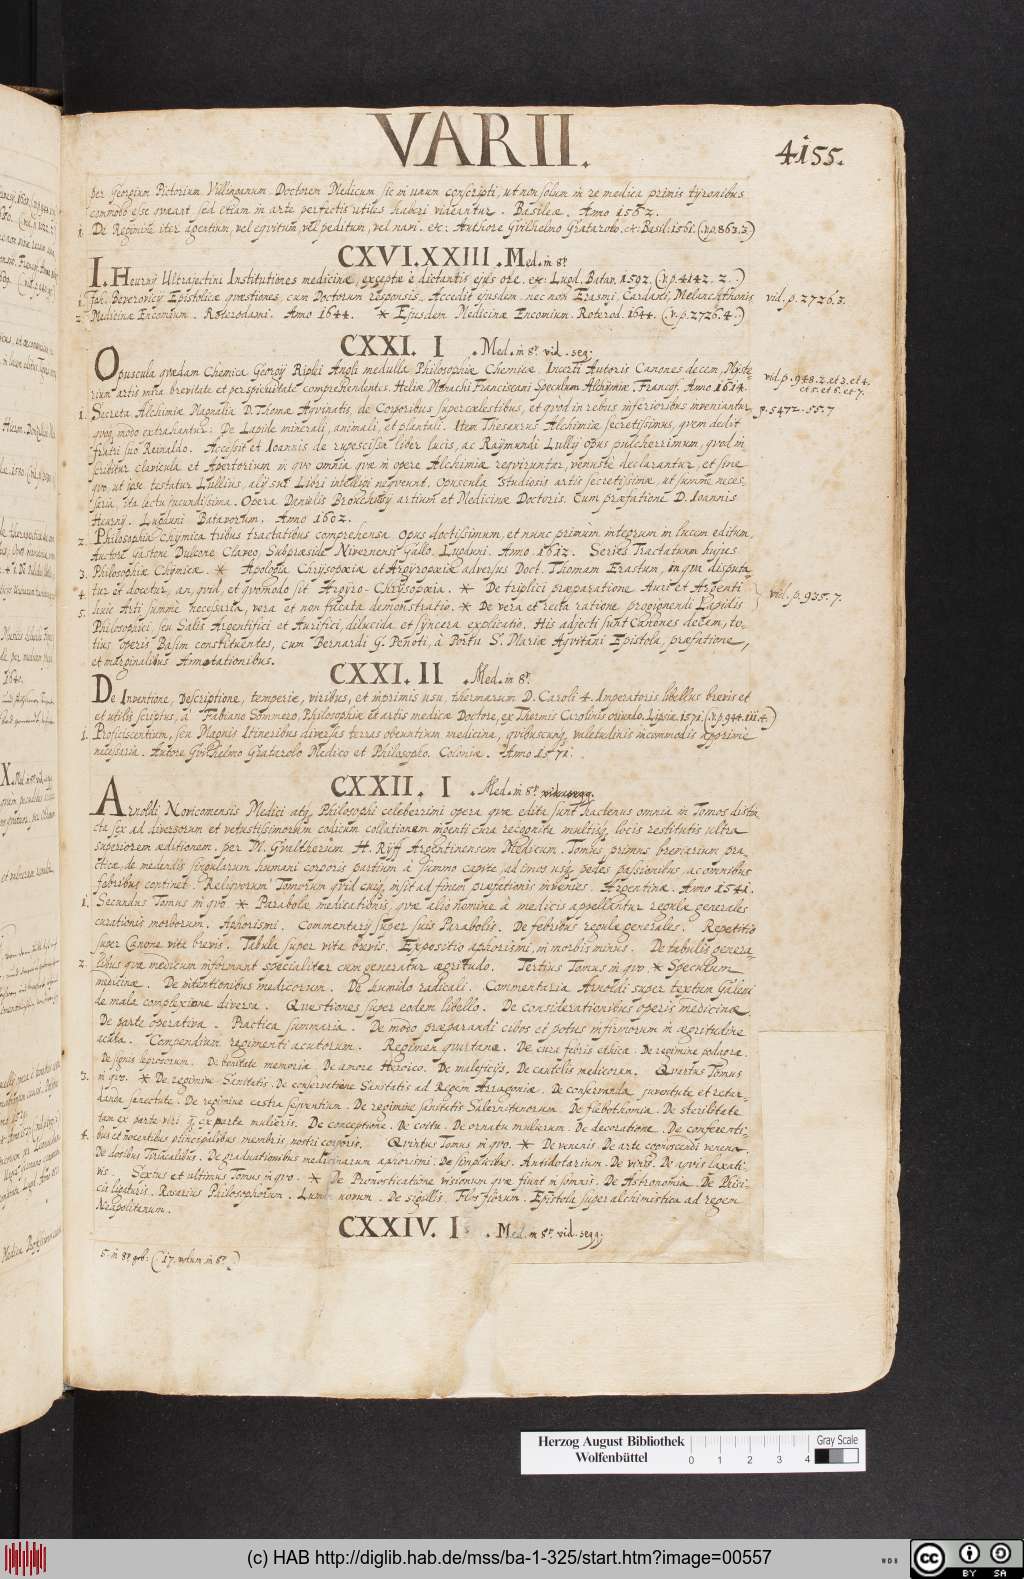 VARII.
4155.
per Georgium Pictorium Villinganum Doctorem Medicum sic in unum conscripti, ut non solum in re medica primis tyronibus
commodo esse queant sed etiam in arte perfectis utiles haberi videantur. Basileæ. Anno 1562.
1. De Regimine iter agentium, vel equitum, vel peditum, vel navi. etc. Authore Guilhelmo Gratarolo. etc. Basil. 1561. (v.p.863.3)
CXVI.XXIII. Med. in 8º
I. Heurny Ultrajectini Institutiones medicinæ, exceptæ è dictantis ejus ore. etc. Lugd. Batav. 1592. (v.p.4142. 2.)
1. Jan. Beverovicy Epistolicæ quæstiones, cum Doctorum responsis. Accedit ejusdem nec non Erasmi, Cardani, Melancthonis
vid. p. 2726. 3.
2. Medicinæ Encomium. Roterodami. Anno 1644. * Ejusdem Medicinæ Encomium. Roterod. 1644. (v.p.2726.4.)
CXXI. I. Med. in 8º vid. seq:
Opuscula quædam Chemica Georgy Riplei Angli medulla Philosophiæ Chemicæ. Incerti Autoris Canones decem, Myste-
rium artis mira brevitate et perspicuitate comprehendentes. Heliæ Monachi Franciscani Speculum Alchymiæ Francof. Anno 1614.
vid. p. 948. 2. et 3. et 4.
et 5. et 6. et 7.
1. Secreta Alchimiæ Magnalia D. Thomæ Aquinatis, de Corporibus supercælestibus, et quod in rebus inferioribus inveniantur,
p. 5472. 55. 7
quoq; modo extrahantur: De Lapide minerali, animali, et plantali. Item Thesaurus Alchimiæ secretissimus, quem dedit
fratri suo Reinaldo. Accessit et Ioannis de rupescissa liber lucis, ac Raÿmundi Lullÿ opus pulcherrimum, quod in-
scribitur clavicula et Apertorium in quo omnia quæ in opere Alchimiæ requiruntur, venustè declarantur, et sine
quo, ut ipse testatur Lullius, alÿ sui Libri intelligi nequeunt. Opuscula studiosis artis secretissimæ, ut summè neces-
saria, ita lectu jucundissima. Opera Danielis Brouchuisÿ artium et Medicinæ Doctoris. Cum præfatione D. Ioannis
Heurny. Lugduni Batavorum. Anno 1602.
2. Philosophia Chymica tribus tractatibus comprehensa. Opus doctissimum, et nunc primum integrum in lucem editum,
Auctore Gastone Dulcone Claveo, Subpræside Nivernensi Gallo. Lugduni. Anno. 1612. Series Tractatuum hujus
3. Philosophiæ Chymicæ. * Apologia Chrysopœiæ et Argyropœiæ adversus Doct. Thomam Erastum, in qua disputa-
4. tur et docetur, an, quid, et quomodo sit Argyro-Chrysopœia. * De triplici præparatione Auri et Argenti
vid. p. 935. 7.
5. huic Arti summè necessaria, vera et non fucata demonstratio. * De vera et recta ratione progignendi Lapidis
Philosophici, seu Salis Argentifici et Aurifici, dilucida et syncera explicatio. His adjecti sunt Canones decem, to-
tius operis Basim constituentes, cum Bernardi G. Penoti, à Portu S. Mariæ Aquitani Epistola, præfatione,
et marginalibus Annotationibus.
CXXI. II. Med. in 8º.
De Inventione, Descriptione, temperie, viribus, et inprimis usu. thermarum D. Caroli 4. Imperatoris libellus brevis et
et utilis scriptus, à Fabiano Sommero, Philosophiæ et artis medicæ Doctore, ex Thermis Carolinis oriundo. Lipsiæ 1571. (v.p.944.iii.4.)
1. Proficiscentium, seu Magnis Itineribus diversas terras obeuntium medicina, quibuscunq; valetudinis incommodis apprime
necessaria. Autore Guilhelmo Gratarolo Medico et Philosopho. Coloniæ. Anno 1571.
CXXII. I. Med. in 8º
Arnoldi Novicomensis Medici atq; Philosophi celeberrimi opera quæ edita sunt hactenus omnia in Tomos distin
cta sex ad diversorum et vetustissimorum codicum collationem ingenti cura recognita multisq; locis restitutis ultra
superiorem æditionem. per M. Gvaltherum H. Rÿff Argentinensem Medicum. Tomus primus breviarium pra-
cticæ, de medendis singularum humani corporis partium à summo capite, ad imos usq; pedes passionibus, ac omnibus
febribus continet. Reliquorum Tomorum quid cuiq; insit ad finem præfationis invenies. Argentinæ. Anno 1541.
1. Secundus Tomus in quo. * Parabolæ, medicationis, quæ alio nomine à medicis appellantur regulæ generales
curationis morborum. Aphorismi. Commentary super suis Parabolis. De febribus regulæ generales. Repetitio
super Canone vita brevis. Tabula super vita brevis. Expositio aphorismi, in morbis minus. De tabulis genera-
2. libus quæ medicum informant specialiter cum generatur ægritudo. Tertius Tomus in quo. * Speculum
medicinæ. De intentionibus medicorum. De humido radicali. Commentaria Arnoldi super textum Galeni
de mala complexione diversa. Questiones super eodem libello. De considerationibus operis medicinæ.
De parte operativa. Practica summaria. De modo præparandi cibos et potus infirmorum in ægritudine
acuta. Compendium regimenti acutorum. Regimen quartanæ. De cura febris ethicæ. De regimine podagræ.
De signis leprosorum. De bonitate memoriæ. De amore Heroico. De maleficijs. De cautelis medicorum. Quartus Tomus
3. in quo. * De regimine Sanitatis. De conservatione Sanitatis ad Regem Arragoniæ. De conservanda juventute et retar-
danda senectute. De regimine castra sequentium. De regimine sanitatis Salernitanorum. De flebothomia. De sterilitate
tam ex parte viri q; ex parte mulieris. De conceptione. De coitu. De ornatu mulierum. De decoratione. De conferenti-
4. bus et nocentibus principalibus membris nostri corporis. Quintus Tomus in quo. * De venenis. De arte cognoscendi venena.
De dosibus Tiriacalibus. De graduationibus medicinarum aphorismi. De simplicibus. Antidotarium. De vinis. De aquis laxati-
vis. Sextus et ultimus Tomus in quo. * De Pronosticatione visionum quæ fiunt in somnis. De Astronomia. De Phisi-
cis ligaturis. Rosarius Philosophorum. Lumen novum. De sigillis. Flos florum. Epistola super alchimistica ad regem
Neapolitanum.
CXXIV. I. Med. in 8º. vid. seqq;
5. in 8º. geb: (17. volum. in 8º.)
Herzog August Bibliothek
Wolfenbüttel
0 1 2 3 4
Gray Scale
(c) HAB http://diglib.hab.de/mss/ba-1-325/start.htm?image=00557
WDB
cc
BY SA